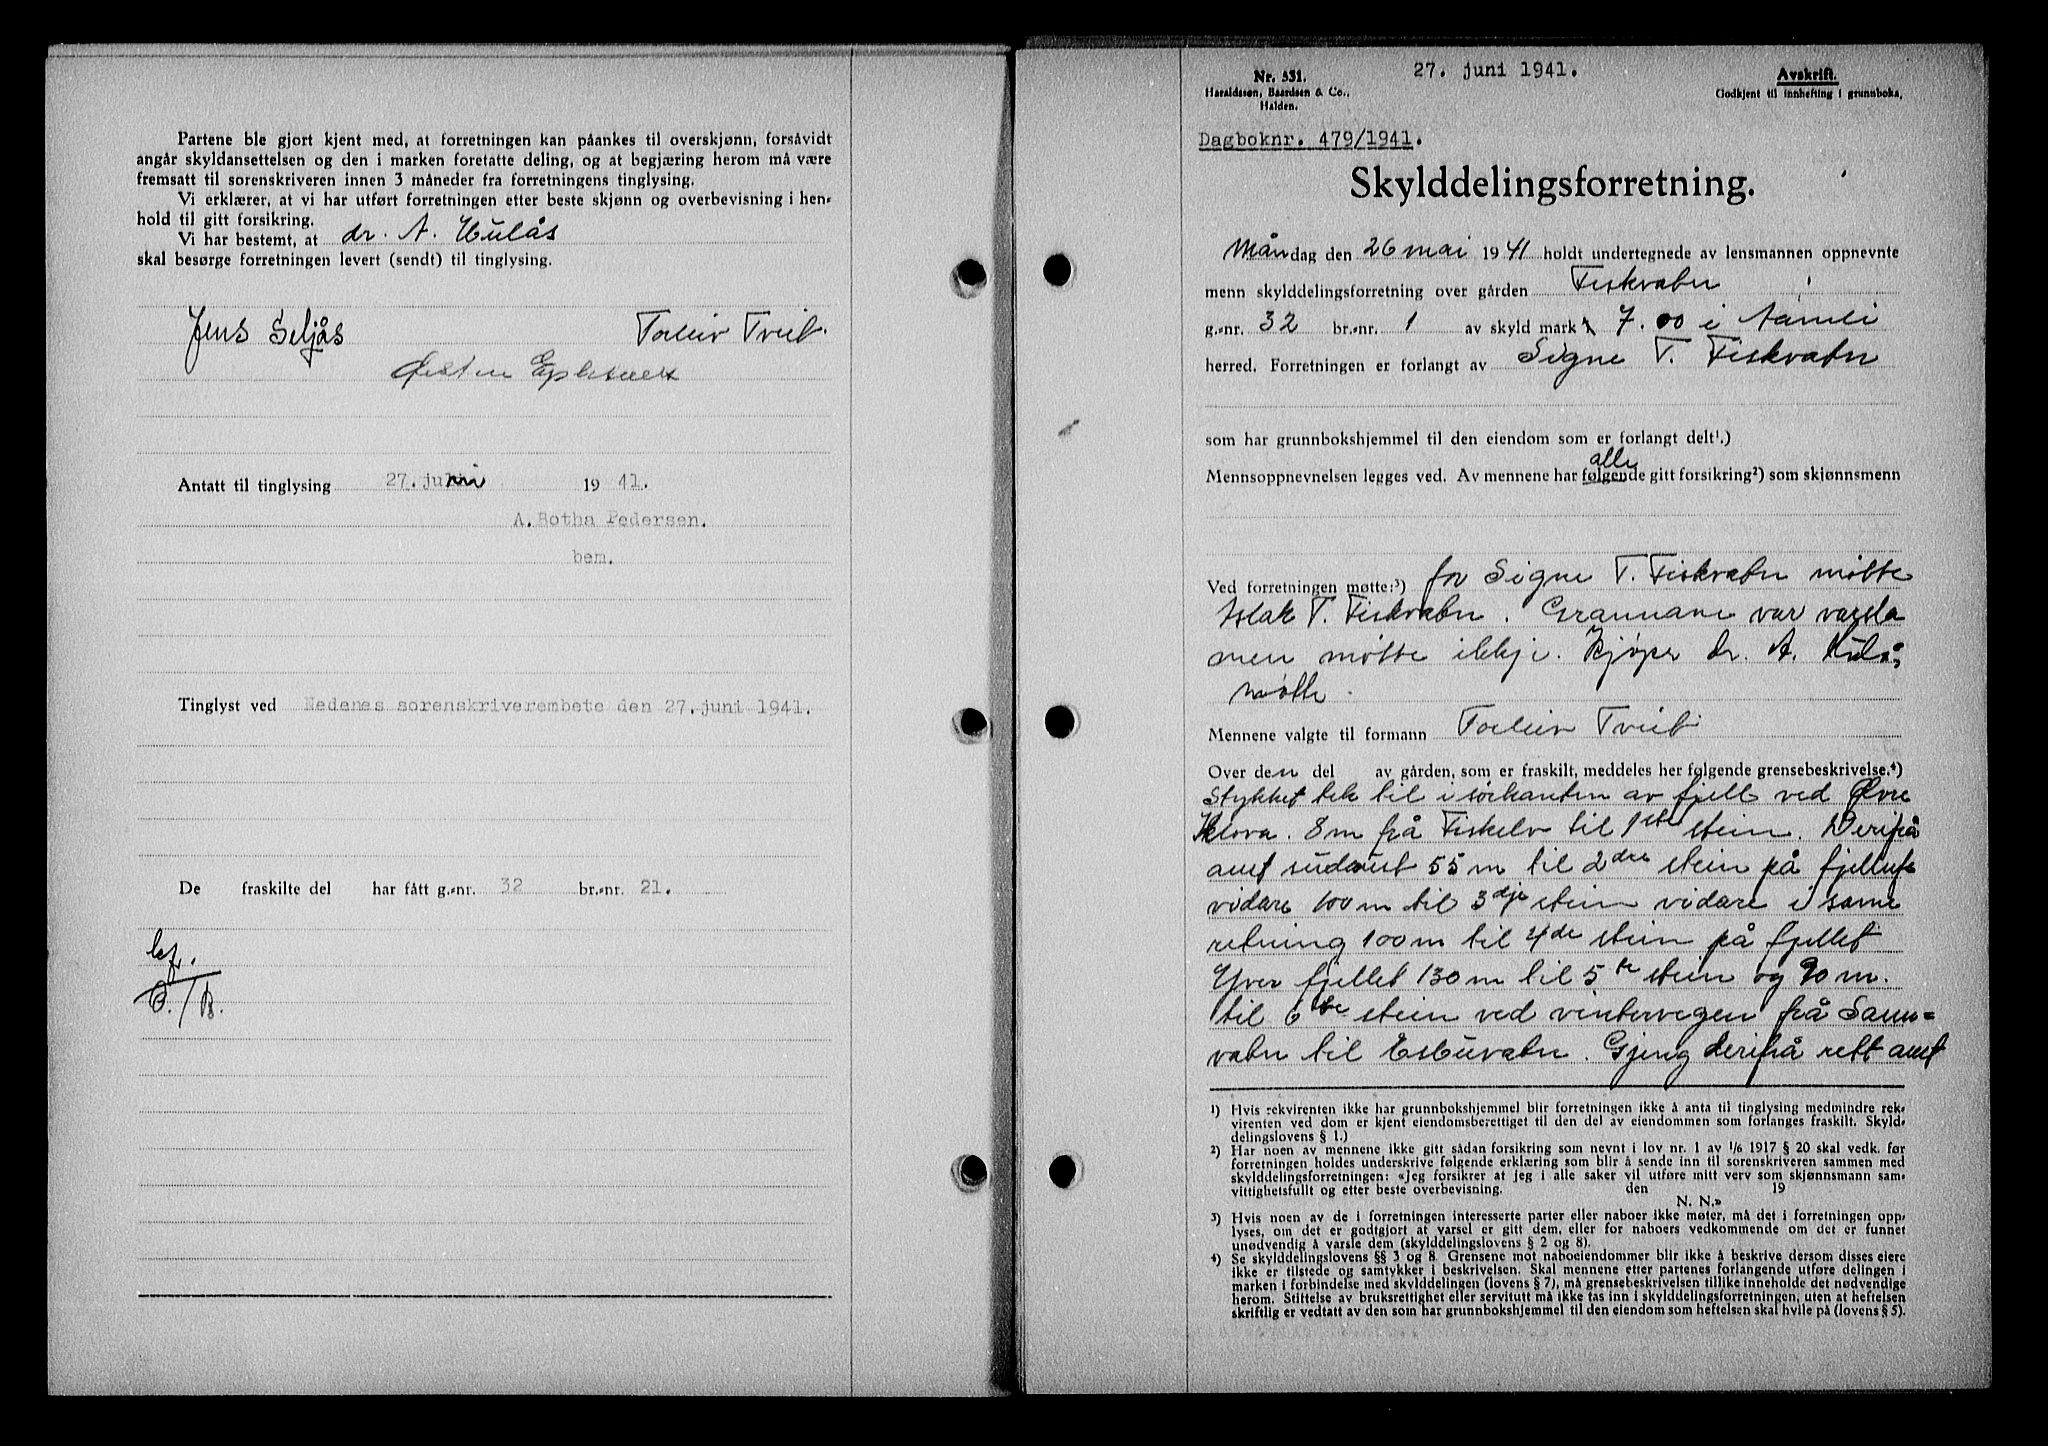 Partene ble gjort kjent med, at forretningen kan påankes til overskjønn, forsåvidt
angår skyldansettelsen og den i marken foretatte deling, og at begjæring herom må være
fremsatt til sorenskriveren innen 3 måneder fra forretningens tinglysing.
Vi erklærer, at vi har utført forretningen etter beste skjønn og overbevisning i hen-
hold til gitt forsikring.
Vi har bestemt, at dr. A. Hulås
skal besørge forretningen levert (sendt) til tinglysing.
Jens Seljås Torleiv Tveit.
Antatt til tinglysing 27. juni 1941.
A. Botha Pedersen.
bem.
Tinglyst ved Nedenes sorenskriverembete den 27. juni 1941.
De fraskilte del har fått g.-nr. 32 br.-nr. 21.
Nr. 531.
Haraldssøn, Baardsen & Co.,
Halden.
27. juni 1941.
Avskrift.
Godkjent til innhefting i grunnboka,
Dagboknr. 479/1941.
Skylddelingsforretning.
Måndag den 26 mai 1941 holdt undertegnede av lensmannen oppnevnte
menn skylddelingsforretning over gården Fiskvatn
g.-nr. 32 br.-nr. 1 av skyld mark 7.00 i Aamli
herred. Forretningen er forlangt av Signe T. Fiskvatn
som har grunnbokshjemmel til den eiendom som er forlangt delt¹.)
alle
Mennsoppnevnelsen legges ved. Av mennene har følgende gitt forsikring²) som skjønnsmenn
Ved forretningen møtte:³) for Signe T. Fiskvatn møtte
Aslak T. Fiskvatn. Grannane var varsla
men møtte ikkje. Kjøper dr. A. Hulås
møtte.
Mennene valgte til formann Torleiv Tveit
Over den del av gården, som er fraskilt, meddeles her følgende grensebeskrivelse.⁴)
Stykket tek til i sørkanten av fjell ved Øvre
Klova. 8 m frå Fiskelv til 1ste stein. Derifrå
aust sudaust 55 m til 2dre stein på fjellufs
vidare 100 m til 3dje stein vidare i same
retning 100 m til 4de stein på fjellet
Yver fjellet 130 m til 5te stein og 90 m.
til 6te stein ved vintervegen frå Sann-
vatn til Eslivatn. Gjeng derifrå rett aust
1) Hvis rekvirenten ikke har grunnbokshjemmel blir forretningen ikke å anta til tinglysing medmindre rek-
virenten ved dom er kjent eiendomsberettiget til den del av eiendommen som forlanges fraskilt. Skyld-
delingslovens § 1.)
2) Har noen av mennene ikke gitt sådan forsikring som nevnt i lov nr. 1 av 1/6 1917 § 20 skal vedk. før
forretningen holdes underskrive følgende erklæring som blir å sende inn til sorenskriveren sammen med
skylddelingsforretningen: «Jeg forsikrer at jeg i alle saker vil utføre mitt verv som skjønnsmann sam-
vittighetsfullt og etter beste overbevisning. den 19
N. N.»
3) Hvis noen av de i forretningen interesserte parter eller naboer ikke møter, må det i forretningen opp-
lyses, om det er godtgjort at varsel er gitt dem, eller for naboers vedkommende om det er funnet
unødvendig å varsle dem (skylddelingslovens § 2 og 8).
4) Se skylddelingslovens §§ 3 og 8. Grensene mot naboeiendommer blir ikke å beskrive dersom disses eiere
ikke er tilstede og samtykker i beskrivelsen. Skal mennene etter partenes forlangende utføre delingen i
marken i forbindelse med skylddelingen (lovens § 7), må grensebeskrivelsen tillike inneholde det nødvendige
herom. Stiftelse av bruksrettighet eller servitutt må ikke tas inn i skylddelingsforretningen, uten at heftelsen
skriftlig er vedtatt av den som har grunnbokshjemmel til den eiendom som heftelsen skal hvile på (lovens § 5).